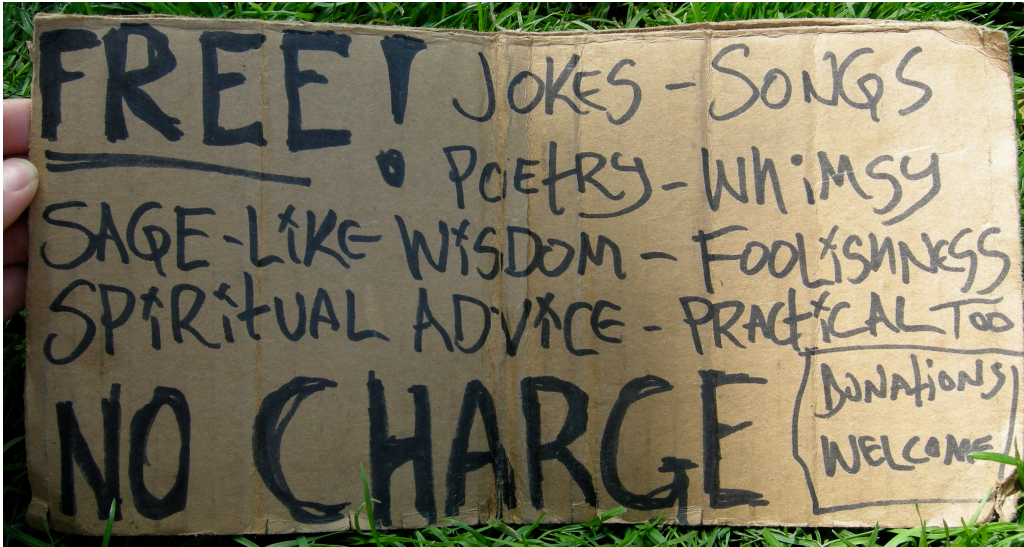 FREE! JOKES - SONGS
POETRY - WHiMSY
SAGE-LiKE WiSDOM - FOOLiSHNESS
SPiRitUAL ADViCE - PRACtiCAL TOO
NO CHARGE
DONAtiONS
WELCOME